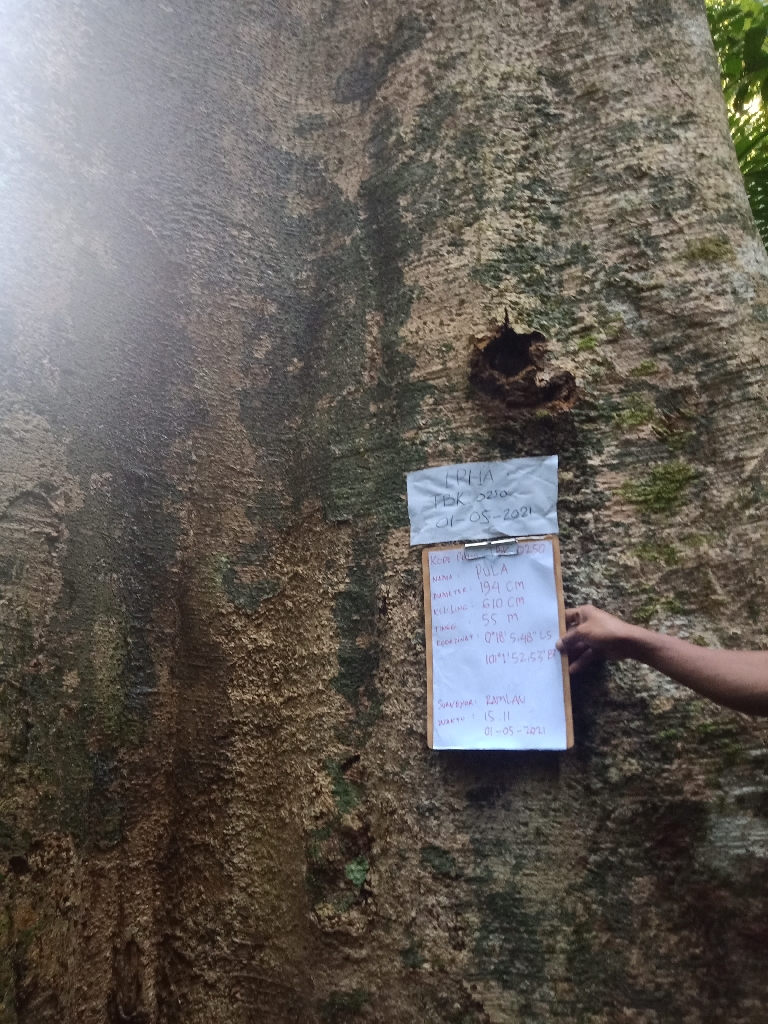 LPHA
TBK 0250
01-05-2021
KODE POHON TBK 0250
NAMA : PULA
DIAMETER : 194 CM
KELILING : 610 CM
TINGGI : 55 M
KOORDINAT : 0°18'5.48" LS
101°1'52.55" BT
SURVEYOR : RAMLAN
WAKTU : 15.11
01-05-2021